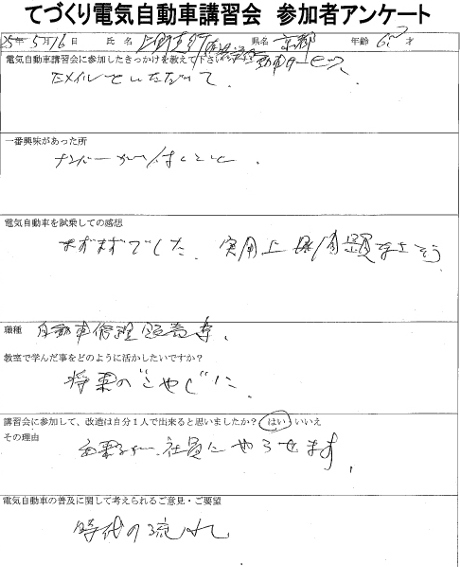 てづくり電気自動車講習会 参加者アンケート
25年 5月16日 氏 名 県名 京都 年齢 才
電気自動車講習会に参加したきっかけを教えて下さい
Eメイルでいただいて、
一番興味があった所
ナンバーが付くこと、
電気自動車を試乗しての感想
まずまずでした、実用上 問題なさそう
職種 自動車修理販売等、
教室で学んだ事をどのように活かしたいですか？
将来の
講習会に参加して、改造は自分1人で出来ると思いましたか？ はい いいえ
その理由
社員にやらせます、
電気自動車の普及に関して考えられるご意見・ご要望
時代の流れ